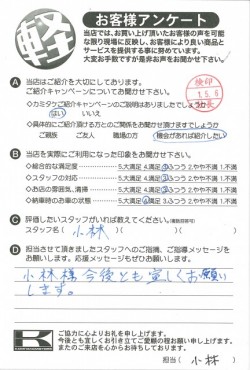 軽
お客様アンケート
当店では、お買い上げ頂いたお客様の声を可能
な限り現場に反映し、お客様により良い商品と
サービスを提供する事に努めています。
大変お手数ですが是非お声をお聞かせ下さい。
A 当店はご紹介を大切にしております。
ご紹介キャンペーンについてお聞かせ下さい。
検印
1 5. 6
◇カミタケご紹介キャンペーンのご説明はありましたでしょうか
はい いいえ
◇具体的にご紹介頂ける方とのご関係をお聞かせ頂けますでしょうか
ご親族 ご友人 職場の方 機会があれば紹介したい
B 当店を実際にご利用になった印象をお聞かせ下さい。
◇総合的な満足度 5.大満足 4.満足 3.ふつう 2.やや不満 1.不満
◇スタッフの対応 5.大満足 4.満足 3.ふつう 2.やや不満 1.不満
◇お店の雰囲気、清掃 5.大満足 4.満足 3.ふつう 2.やや不満 1.不満
◇納車時のお車の状態 5.大満足 4.満足 3.ふつう 2.やや不満 1.不満
C 評価したいスタッフがいれば教えてください。(複数回答可)
スタッフ名( 小林 )( )
D 担当させて頂きましたスタッフへのご指摘、ご指導メッセージを
お願いします。応援メッセージもぜひお願いします。
小林様 今後とも宜しくお願い
します。
K
ご協力に心よりお礼を申し上げます。
今後とも宜しくお引き立てご愛顧の程お願い申し上げます。
またのご来店を心からお待ちしております。
担当( 小林 )